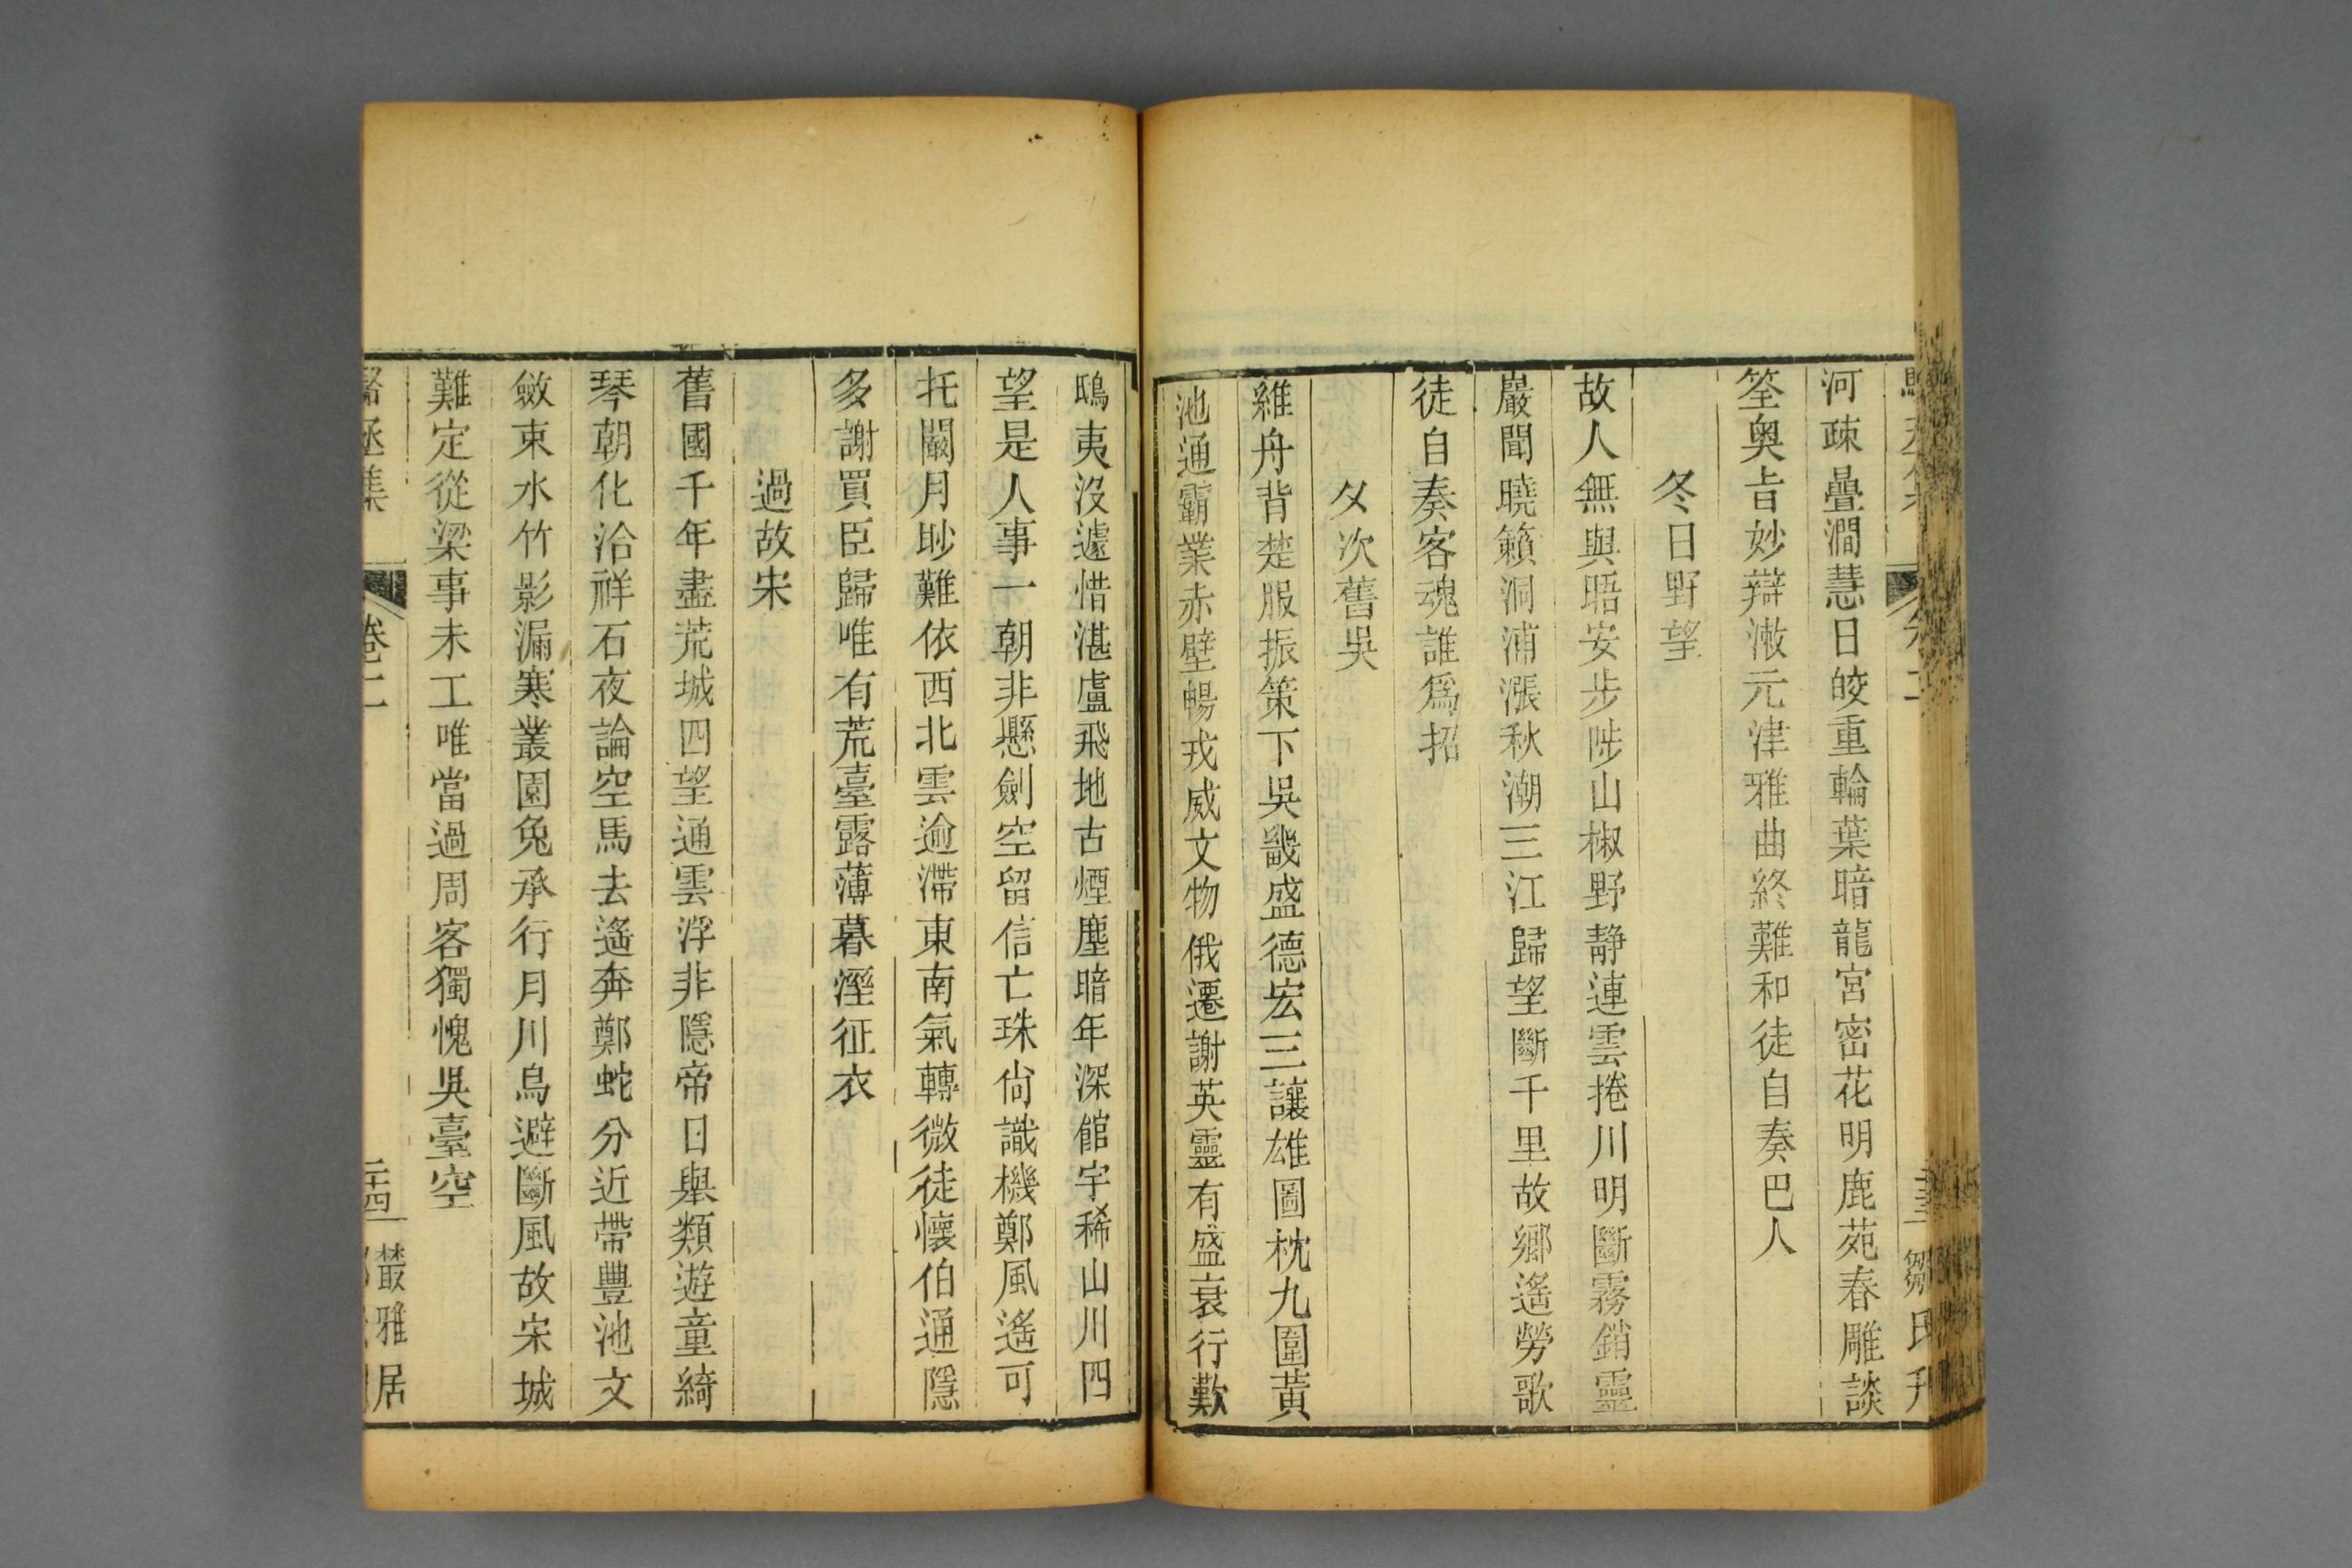 河疎疊澗慧日皎重輪葉暗龍宮密花明鹿苑春雕談
筌奥旨妙辯漱元津雅曲終難和徒自奏巴人
冬日野望
故人無與晤安步陟山椒野静連雲捲川明斷霧銷靈
巖聞曉籟洞浦漲秋潮三江歸望斷千里故鄉遙勞歌
徒自奏客魂誰爲招
夂次舊吳
維舟背楚服振策下吳畿盛德宏三讓雄圖枕九圍黃
池通霸業赤壁暢戎威文物俄遷謝英靈有盛衰行歎
鴟夷沒遽惜湛盧飛地古煙塵暗年深館宇稀山川四
望是人事一朝非懸劍空留信亡珠尙識機鄭風遙可
托關月眇難依西北雲逾滯東南氣轉微徒懷伯通隱
多謝買臣歸唯有荒臺露薄暮溼征衣
過故宋
舊國千年盡荒城四望通雲浮非隱帝日舉類遊童綺
琴朝化洽祥石夜論空馬去遙奔鄭蛇分近帶豐池文
斂束水竹影漏寒叢園兔承行月川烏避斷風故宋城
難定從梁事未工唯當過周客獨愧吳臺空
駱丞集 卷二 二十四 叢雅居